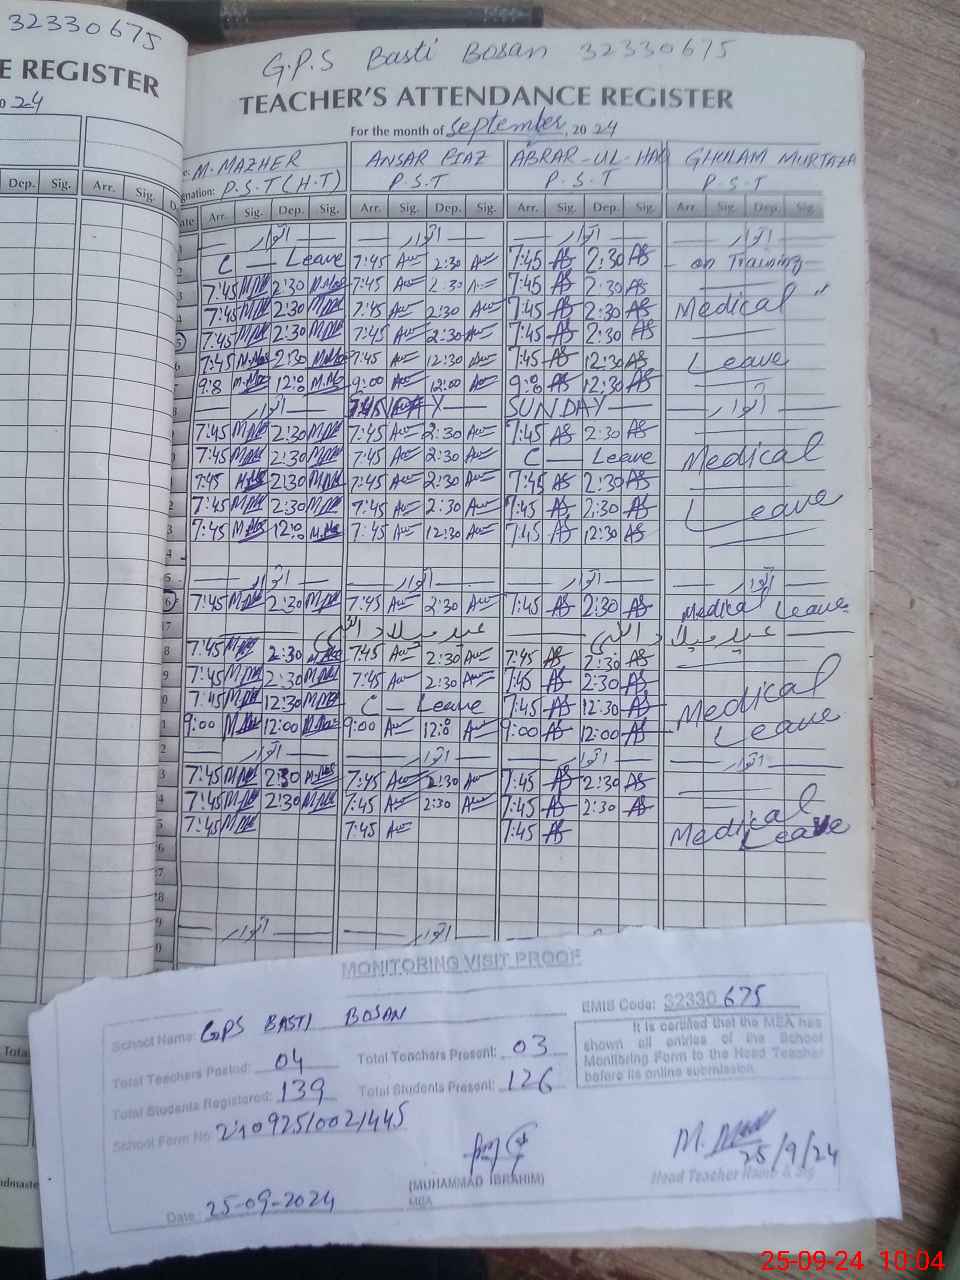 32330675
E REGISTER
0 24
Dep. Sig. Arr. Sig.
G.P.S Basti Bosan 32330675
TEACHER'S ATTENDANCE REGISTER
For the month of September, 2024
M. MAZHER ANSAR RIAZ ABRAR-UL-HAQ GHULAM MURTAZA
gnation: P.S.T (H.T) P.S.T P.S.T P.S.T
ate Arr. Sig. Dep. Sig. Arr. Sig. Dep. Sig. Arr. Sig. Dep. Sig. Arr. Sig. Dep. Sig.
اتوار اتوار اتوار اتوار
2 C — Leave 7:45 2:30 7:45 AS 2:30 AS on Training
3 7:45 2:30 7:45 2:30 7:45 AS 2:30 AS
7:45 2:30 7:45 2:30 7:45 AS 2:30 AS Medical
5 7:45 2:30 7:45 2:30 7:45 AS 2:30 AS
6 7:45 2:30 7:45 12:30 7:45 AS 12:30 AS Leave
9:00 12:00 AS 12:30 AS
8 اتوار 7:45 SUNDAY اتوار
7:45 2:30 7:45 2:30 7:45 AS 2:30 AS
7:45 2:30 7:45 2:30 C — Leave Medical
7:45 2:30 7:45 2:30 7:45 AS 2:30 AS
2 7:45 2:30 7:45 2:30 7:45 AS 2:30 AS Leave
3 7:45 12:00 7:45 12:30 7:45 AS 12:30 AS
4
5 اتوار اتوار اتوار اتوار
6 7:45 2:30 7:45 2:30 7:45 AS 2:30 AS Medical Leave
17 عید میلاد النبی عید میلاد النبی
8 7:45 2:30 7:45 2:30 7:45 AS 2:30 AS
9 7:45 2:30 7:45 2:30 7:45 AS 2:30 AS
0 7:45 12:30 C — Leave 7:45 AS 12:30 AS Medical
9:00 12:00 9:00 12:00 9:00 AS 12:00 AS Leave
2 اتوار اتوار اتوار اتوار
3 7:45 2:30 7:45 2:30 7:45 AS 2:30 AS
4 7:45 2:30 7:45 2:30 7:45 AS 2:30 AS
5 7:45 7:45 7:45 AS Medical Leave
26
27
28
9 اتوار اتوار
0
Total
MONITORING VISIT PROOF
School Name: GPS BASTI BOSAN EMIS Code: 32330675
Total Teachers Posted: 04 Total Teachers Present: 03
Total Students Registered: 139 Total Students Present: 126
It is certified that the MEA has
shown all entries of the School
Monitoring Form to the Head Teacher
before its online submission.
School Form No. 210925/002/445
M. 25/9/24
(MUHAMMAD IBRAHIM)
MEA
Head Teacher Name & Sig
Date: 25-09-2024
25-09-24 10:04